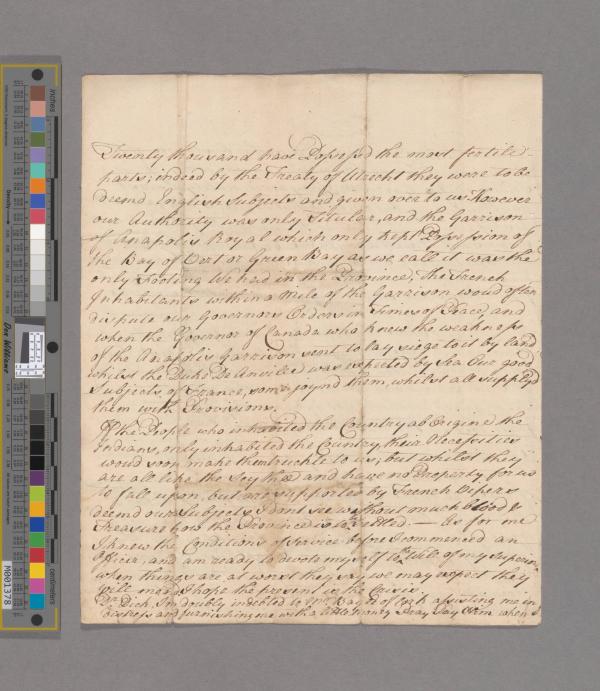 Twenty thousand have Possess'd the most fertile
parts; indeed by the Treaty of Utrecht they were to be
deemd English Subjects and given over to us However
our Authority was only Titular, and the Garrison
of Anapolis Royal which only kept Possession of
the Bay of Vert or Green Bay as we call it was the
only Footing We had in the Province, The French
Inhabitants within a Mile of the Garrison would often
dispute our Governors Orders in Times of Peace, and
when the Governor of Canada who knew the weakness
of the Anapolis Garrison sent to lay siege to it by land
whilst the Duke De Anville was expected by Sea Our good
Subjects of France, some joynd them, whilst all supplyd
them with Provisions.
If the People who inhabited the Country ab Origine the
Indians, only inhabited the Country, their Necessities
would soon make them truckle to us, but whilst they
are all like the Scythæ and have no Property for us
to fall upon, but are supported by French Vipers
deemd our Subjects I dont see without much blood &
Treasure how the Province is to be settled. — As for me
I knew the Conditions of Service before I commenced an
Officer, and am ready to devote myself to the Will of my Superiors
when things are at worst they say we may expect they
will mend, I hope the present is the Crisis.
Dick, I'm doubly indebted to Mr. of Cork assisting me in
distress and furnishing me with a little money Pray Pay him when
inches
centimeters
Don Williams
M001378